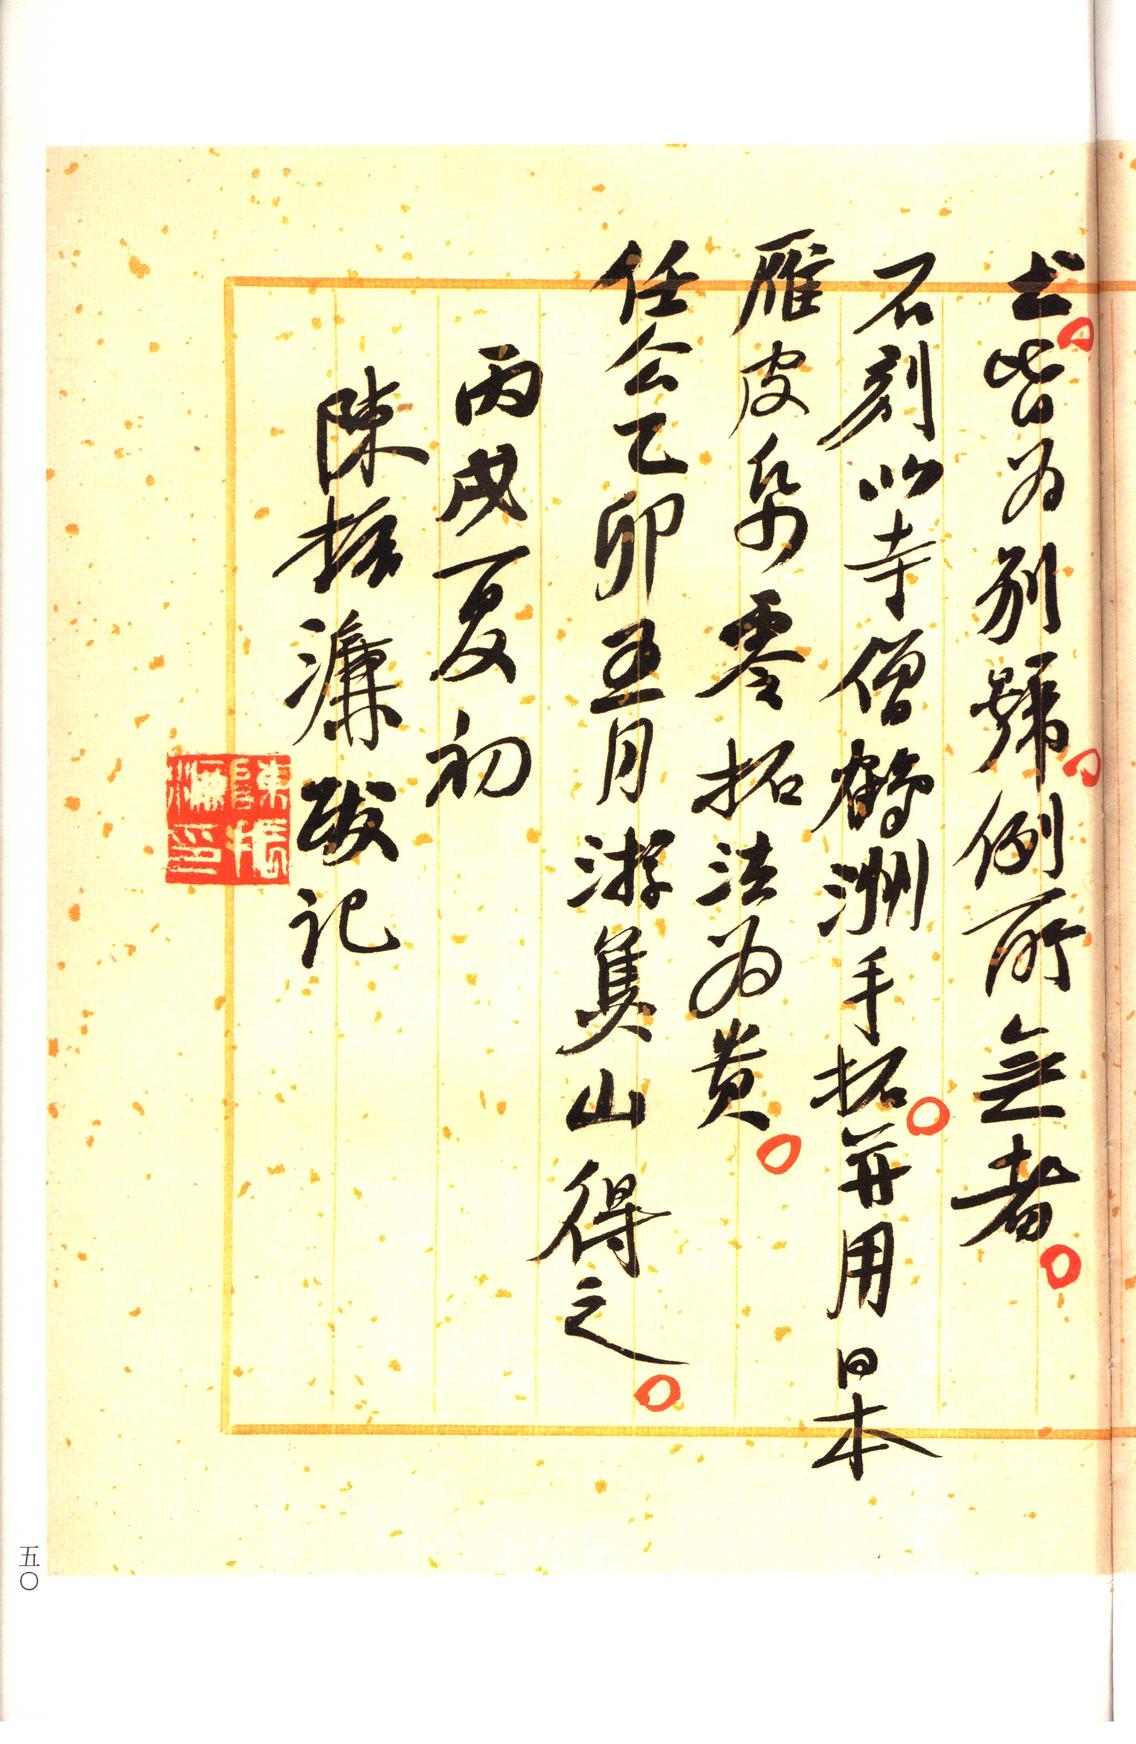 士皆为别號例所無者
石刻以寺僧鶴洲手拓并用日本
雁皮帋零拓法为贵
任公乙卯五月游焦山得之
丙戌夏初
陳振濂跋记
陳振濂印
五〇